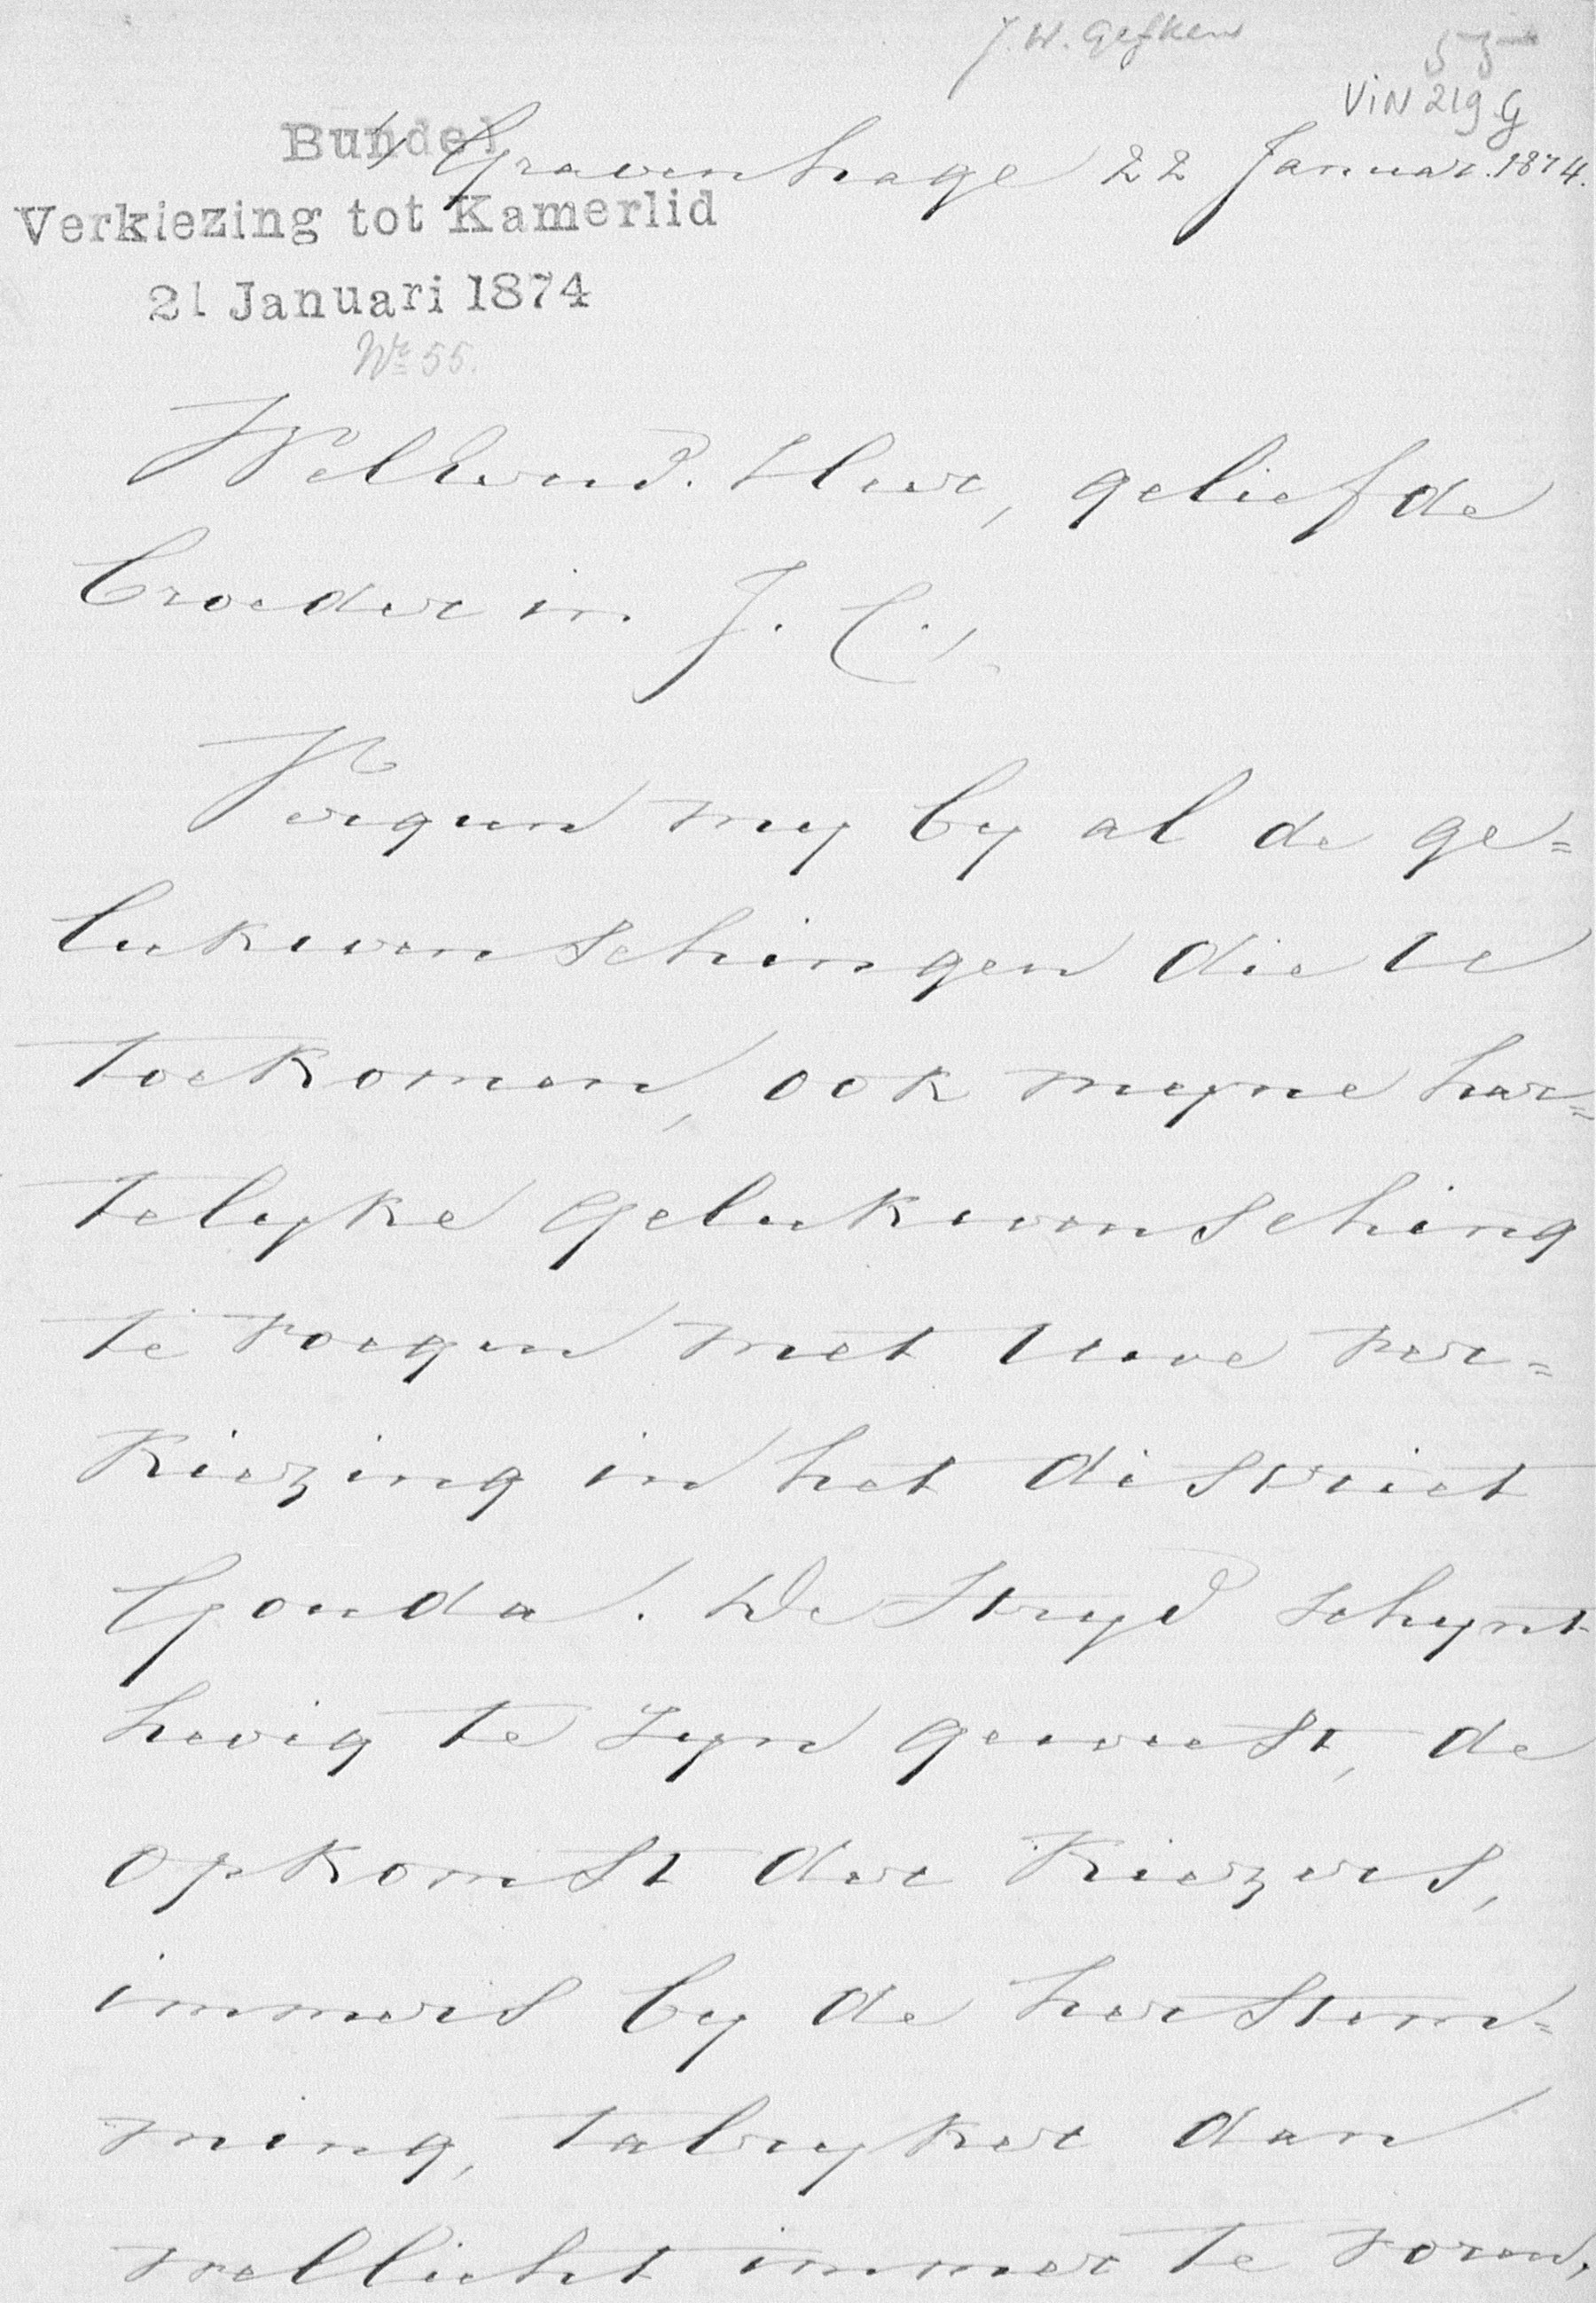 J. W. Gefken
55
VIN 219 G
Bundel
's Gravenhage 22 Januar. 1874.
Verkiezing tot Kamerlid
21 Januari 1874
No 55.
WelEerwd. Heer, geliefde
broeder in J. C.,
Vergun my by al de ge=
lukwenschingen die U
toekomen, ook myne har=
telyke gelukwensching
te voegen met Uwe ver=
kiezing in het district
Gouda. De stryd schynt
hevig te zyn geweest, de
opkomst der kiezers,
immers by de herstem=
ming, talryker dan
wellicht immer te voren,